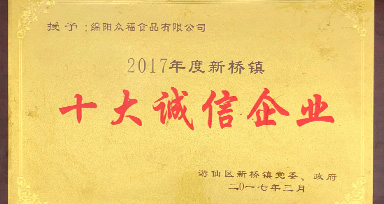 授予：绵阳众福食品有限公司
2017年度新桥镇
十大诚信企业
游仙区新桥镇党委、政府
二〇一七年二月